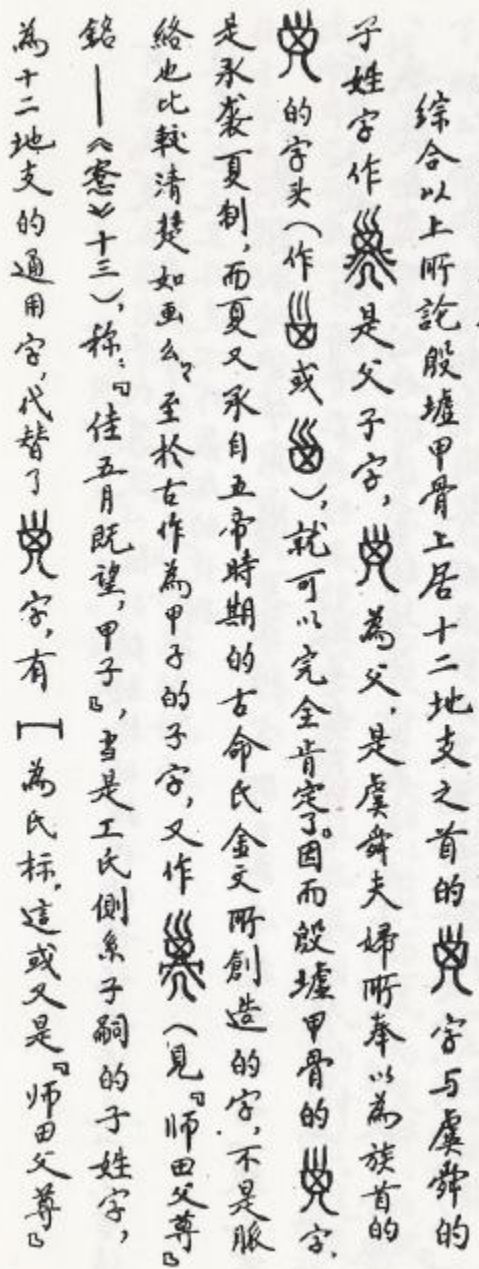 綜合以上所論殷墟甲骨上居十二地支之首的字与虞舜的
子姓字作是父子字，為父，是虞舜夫婦所奉以為族首的
的字头（作或），就可以完全肯定了。因而殷墟甲骨的字，
是承袭夏制，而夏又承自五帝時期的古命氏金文所創造的字，不是脈
絡也比較清楚如画么？至於古作為甲子的子字，又作（見『师田父尊』
銘——《愙》十三），称：『隹五月既望，甲子』，当是工氏側系子嗣的子姓字，
為十二地支的通用字，代替了字，有為氏标，這或又是『师田父尊』